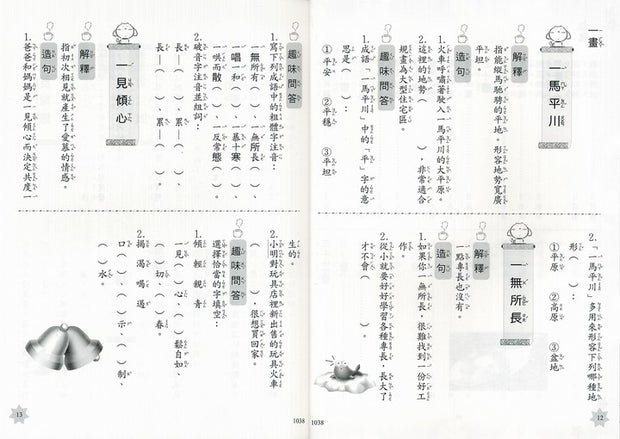 一畫
一馬平川
解釋
指能縱馬馳騁的平地。形容地勢寬廣
平坦。
造句
1.火車呼嘯著駛入一馬平川的大平原。
2.這裡的地勢(　　)，非常適合
規畫為大型住宅區。
趣味問答
1.成語「一馬平川」中的「平」字的意
思是(　)：
①平安　②平穩　③平坦
2.「一馬平川」多用來形容下列哪種地
形(　)：
①平原　②高原　③盆地
一無所長
解釋
一點專長也沒有。
造句
1.如果你一無所長，很難找到一份好工
作。
2.從小就要好好學習各種專長，長大了
才不會(　　)。
12
1038
趣味問答
1.寫下列成語中的粗體字注音：
一無所有(　)、一無所長(　)、
一唱一和(　)、一暴十寒(　)、
一哄而散(　)、一反常態(　)。
2.破音字注音並組詞：
長—(　)、累—(　)、
長—(　)、累—(　)。
一見傾心
解釋
指初次相見就產生了愛慕的情感。
造句
1.爸爸和媽媽是一見傾心而決定共度一
生的。
2.小明對玩具店裡新出售的玩具火車
(　　)，很想買回家。
趣味問答
1.選擇恰當的字填空：
傾　輕　親　青
一見(　)心、(　)鬆自如、
(　)切、(　)春。
2.揭　渴　喝　遏
口(　)、(　)示、(　)制、
(　)水。
13
1038